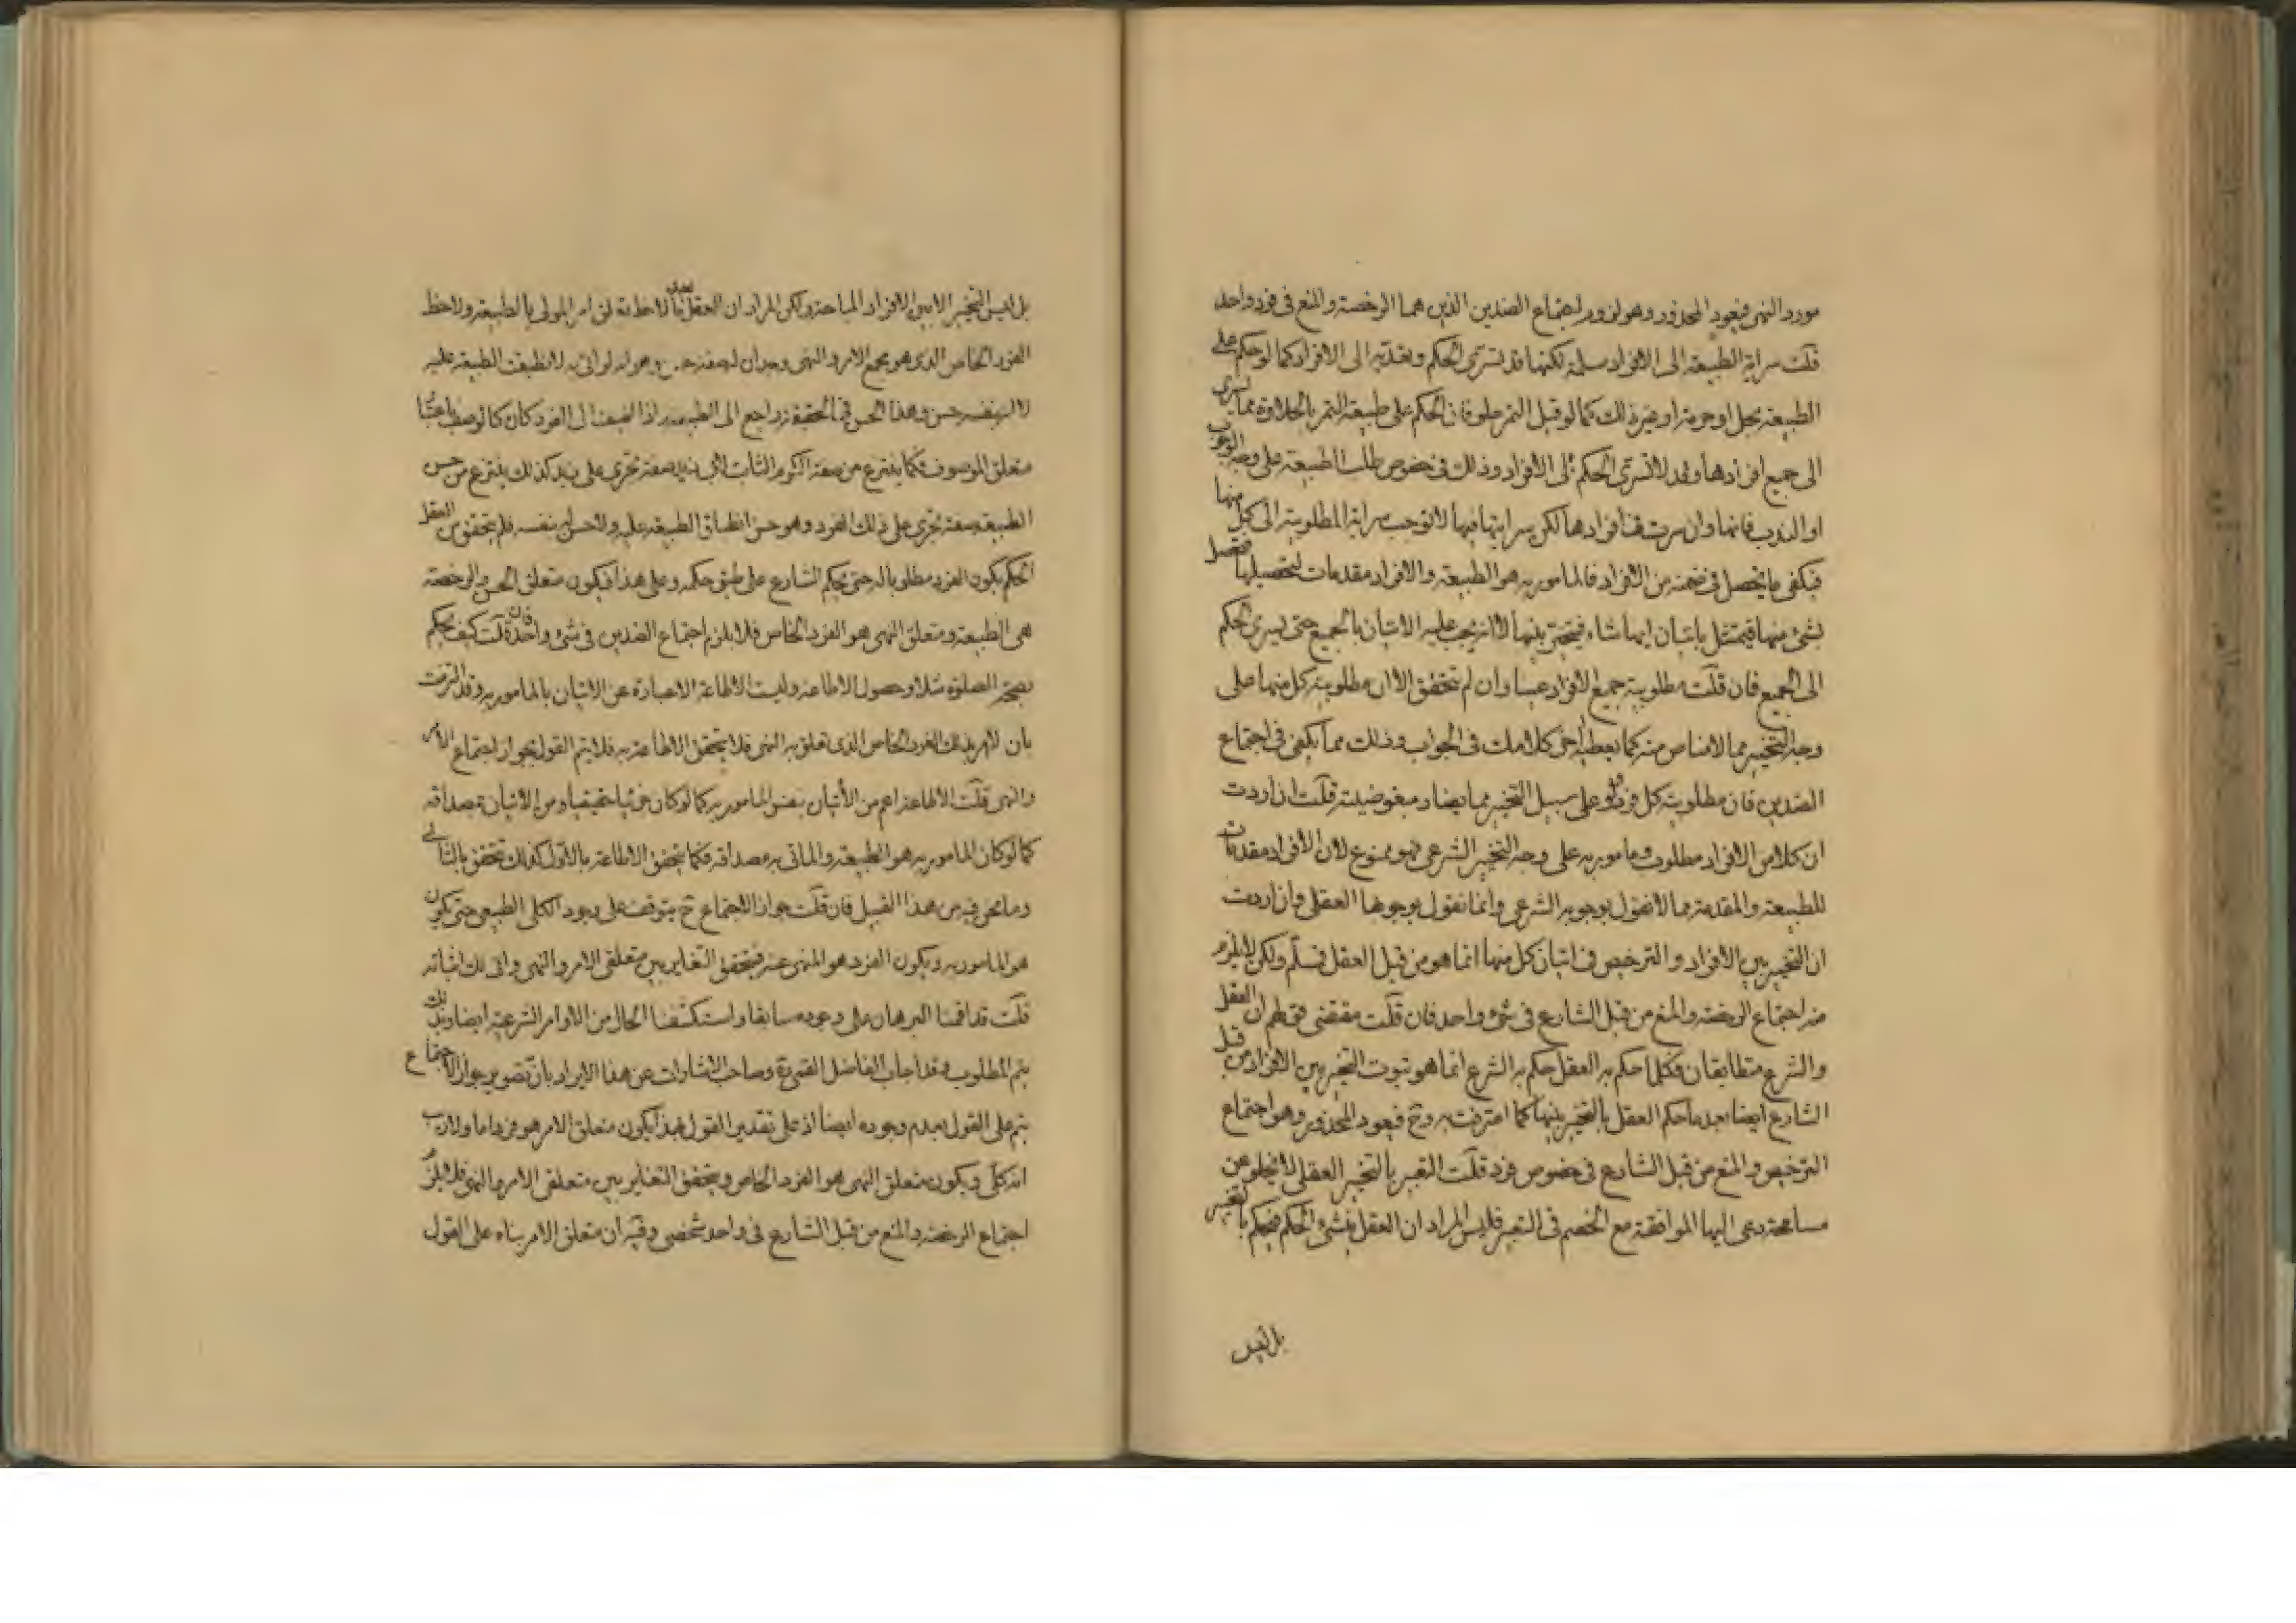 مورد النهى فيعود المحذور وهو لزوم اجتماع الضدين الذين هما الرخصة والمنع فى فرد واحد
قلت سراية الطبيعة الى الافراد مسلمة لكنها قد تسرى الحكم وتعديه الى الافراد كما لو حكم على
الطبيعة بحل او حرمة او غير ذلك كما لو قيل التمر حلو فان الحكم على طبيعة التمر بالحلاوة مما يسرى
الى جميع افرادها وقد لا تسرى الحكم الى الافراد وذلك فى خصوص طلب الطبيعة على وجه الوجوب
او الندب فانها وان سرت فى افرادها لكن سرايتها فيها لا توجب سراية المطلوبية الى كل منها
فيكفى ما يحصل فى ضمنه من الافراد فالمامور به هو الطبيعة والافراد مقدمات لتحصيلها فتحصل
بشئ منها فيمتثل باتيان ايها شاء فيتخير بينها لا انه يجب عليه الاتيان بالجميع حتى يسرى الحكم
الى الجميع فان قلت مطلوبية جميع الافراد عينا وان لم تتحقق الا ان مطلوبية كل منها على
وجه التخيير مما لا مناص منه كما يعطيه كلامك فى الجواب وذلك مما يكفى فى اجتماع
الضدين فان مطلوبية كل فرد ولو على سبيل التخيير مما يضاد مبغوضيته قلت ان اردت
ان كلا من الافراد مطلوب ومامور به على وجه التخيير الشرعى فهو ممنوع لان الافراد مقدمات
للطبيعة والمقدمة مما لا نقول بوجوبه الشرعى وانما نقول بوجوبها العقلى وان اردت
ان التخيير بين الافراد والترخيص فى اتيان كل منها انما هو من قبل العقل فمسلم ولكن لا يلزم
منه اجتماع الرخصة والمنع من قبل الشارع فى شئ واحد فان قلت مقتضى ان العقل
والشرع متطابقان فكلما حكم به العقل حكم به الشرع انما هو ثبوت التخيير بين الافراد من قبل
الشارع ايضا بعد ما حكم العقل بالتخيير بينها كما اعترفت به وح فيعود المحذور وهو اجتماع
الترخيص والمنع من قبل الشارع فى خصوص فرد قلت التعبير بالتخيير العقلى لا يخلو عن
مسامحة دعى اليها الموافقة مع الخصم فى التعبير فليس المراد ان العقل ينشئ الحكم فيحكم بالتخيير
بل ليس
بل ليس التخيير الا بين الافراد المباحة ولكن المراد ان العقل بعد ملاحظة ان امر المولى بالطبيعة ولاحظ
الفرد الخاص الذى هو مجمع الامر والنهى وجد ان وهو انه لو اتى به لانطبقت الطبيعة عليه
لا انه بنفسه حسن وهذا الحسن فى الحقيقة راجع الى الطبيعة اذا الى الفرد كان كالوصف باعتبار
متعلق الموصوف فكما ينتزع من صفة الكرم الثابت لابى زيد صفة تجرى على زيد كذلك ينتزع من حسن
الطبيعة صفة تجرى على ذلك الفرد وهو حسن انطباق الطبيعة عليه ولا حسن له بنفسه فلم يتحقق من العقل
الحكم بكون الفرد مطلوبا له حتى يحكم الشارع على طبق حكمه وعلى هذا فيكون متعلق الحسن والرخصة
هى الطبيعة ومتعلق النهى هو الفرد الخاص فلا يلزم اجتماع الضدين فى شئ واحد فان قلت كيف يحكم
بصحة الصلوة مثلا وحصول الاطاعة وليست الاطاعة الا عبارة عن الاتيان بالمامور به وقد التزمت
بان لا امر بذلك الفرد الخاص الذى تعلق به النهى فلا يتحقق الاطاعة به فلا يتم القول بجواز اجتماع الامر
والنهى قلت الاطاعة اعم من الاتيان بنفس المامور به كما لو كان جزئيا حقيقيا ومن الاتيان بمصداقه
كما لو كان المامور به هو الطبيعة والماتى به مصداقه فكما يتحقق الاطاعة بالاول كذلك تتحقق بالثانى
وما نحن فيه من هذا القبيل فان قلت جواز الاجتماع ح يتوقف على وجود الكلى الطبيعى حتى يكون
هو المامور به ويكون الفرد هو المنهى عنه فيتحقق التغاير بين متعلقى الامر والنهى وانى لك اثباته
قلت قد اقمنا البرهان على وجوده سابقا واستكشفنا الحال من الاوامر الشرعية ايضا وبذلك
يتم المطلوب وقد اجاب الفاضل القمى ره وصاحب الاشارات عن هذا الايراد بان تصوير جواز الاجتماع
يتم على القول بعدم وجوده ايضا اذ على تقدير القول بهذا يكون متعلق الامر هو فردا ما ولا ريب
انه كلى ويكون متعلق النهى هو الفرد الخاص ويتحقق التغاير بين متعلقى الامر والنهى فلا يلزم
اجتماع الرخصة والمنع من قبل الشارع فى واحد شخصى وفيه ان متعلق الامر بناء على القول